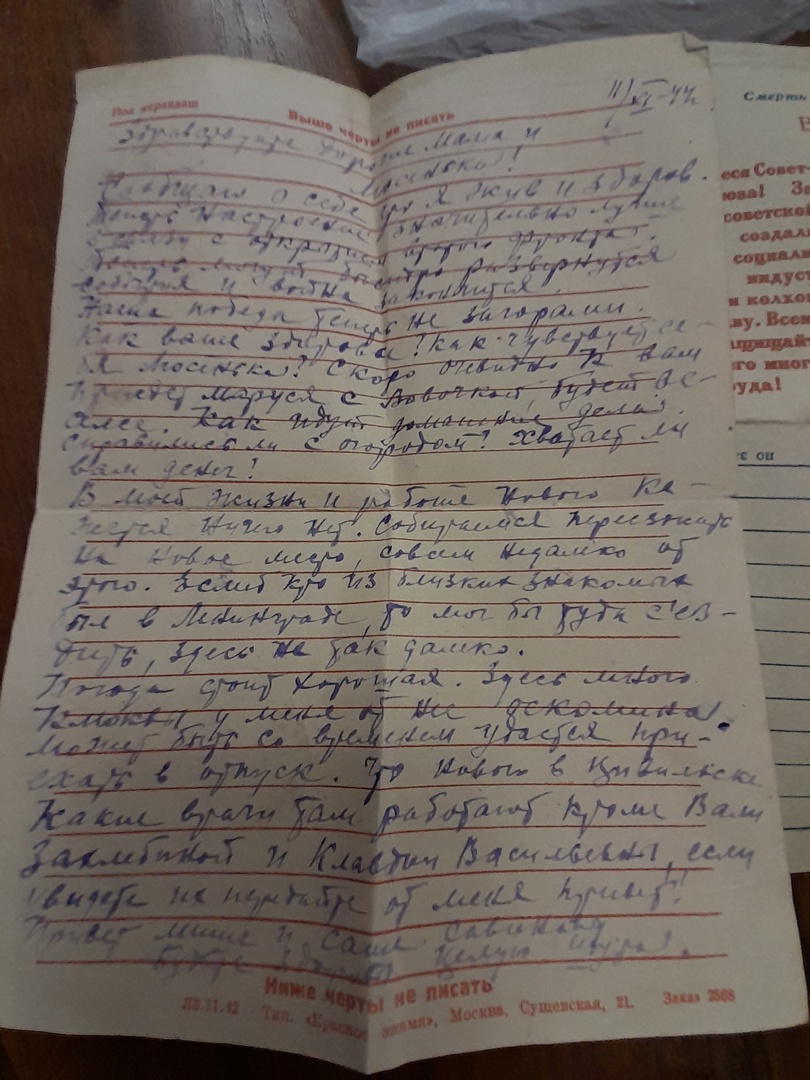 Под карандаш
Выше черты не писать
11/VI-44
Здравствуйте дорогие Мама и
Люсенька!
Сообщаю о себе что я жив и здоров.
Теперь настроение значительно лучше
в связи с открытием второго фронта.
Теперь могут быстро развернутся
события и война закончится.
Наша победа теперь не загорами.
Как ваше здоровье? как чувствует се-
бя Люсенька? Скоро очевидно к вам
приедет Маруся с Вовочкой, будет ве-
селее. Как идут домашние дела?
Справились ли с огородом? Хватает ли
вам денег?
В моей жизни и работе нового ка-
жется ничего нет. Собираемся переезжать
на новое место, совсем недалеко от
этого. Если б кто из близких знакомых
был в Ленинграде, то мог бы туда съез-
дить, здесь не так далеко.
Погода стоит хорошая. Здесь много
клюквы у меня от неё оскомина.
Может быть со временем удастся при-
ехать в отпуск. Что нового в Цивильске
Какие врачи там работают кроме Вали
Заклебиной и Клавдии Васильевны, если
увидете их передайте от меня привет!
Привет Мише и Саше
Будьте здоровы Целую
Ниже черты не писать
23.11.42 Тип. «Красное знамя», Москва, Сущевская, 21. Заказ 2568
Смерть
В
еся Совет-
оюза! За
советской
создали
социали
индуст
и колхо
ву. Всем
ащищайт
его мног
руда!